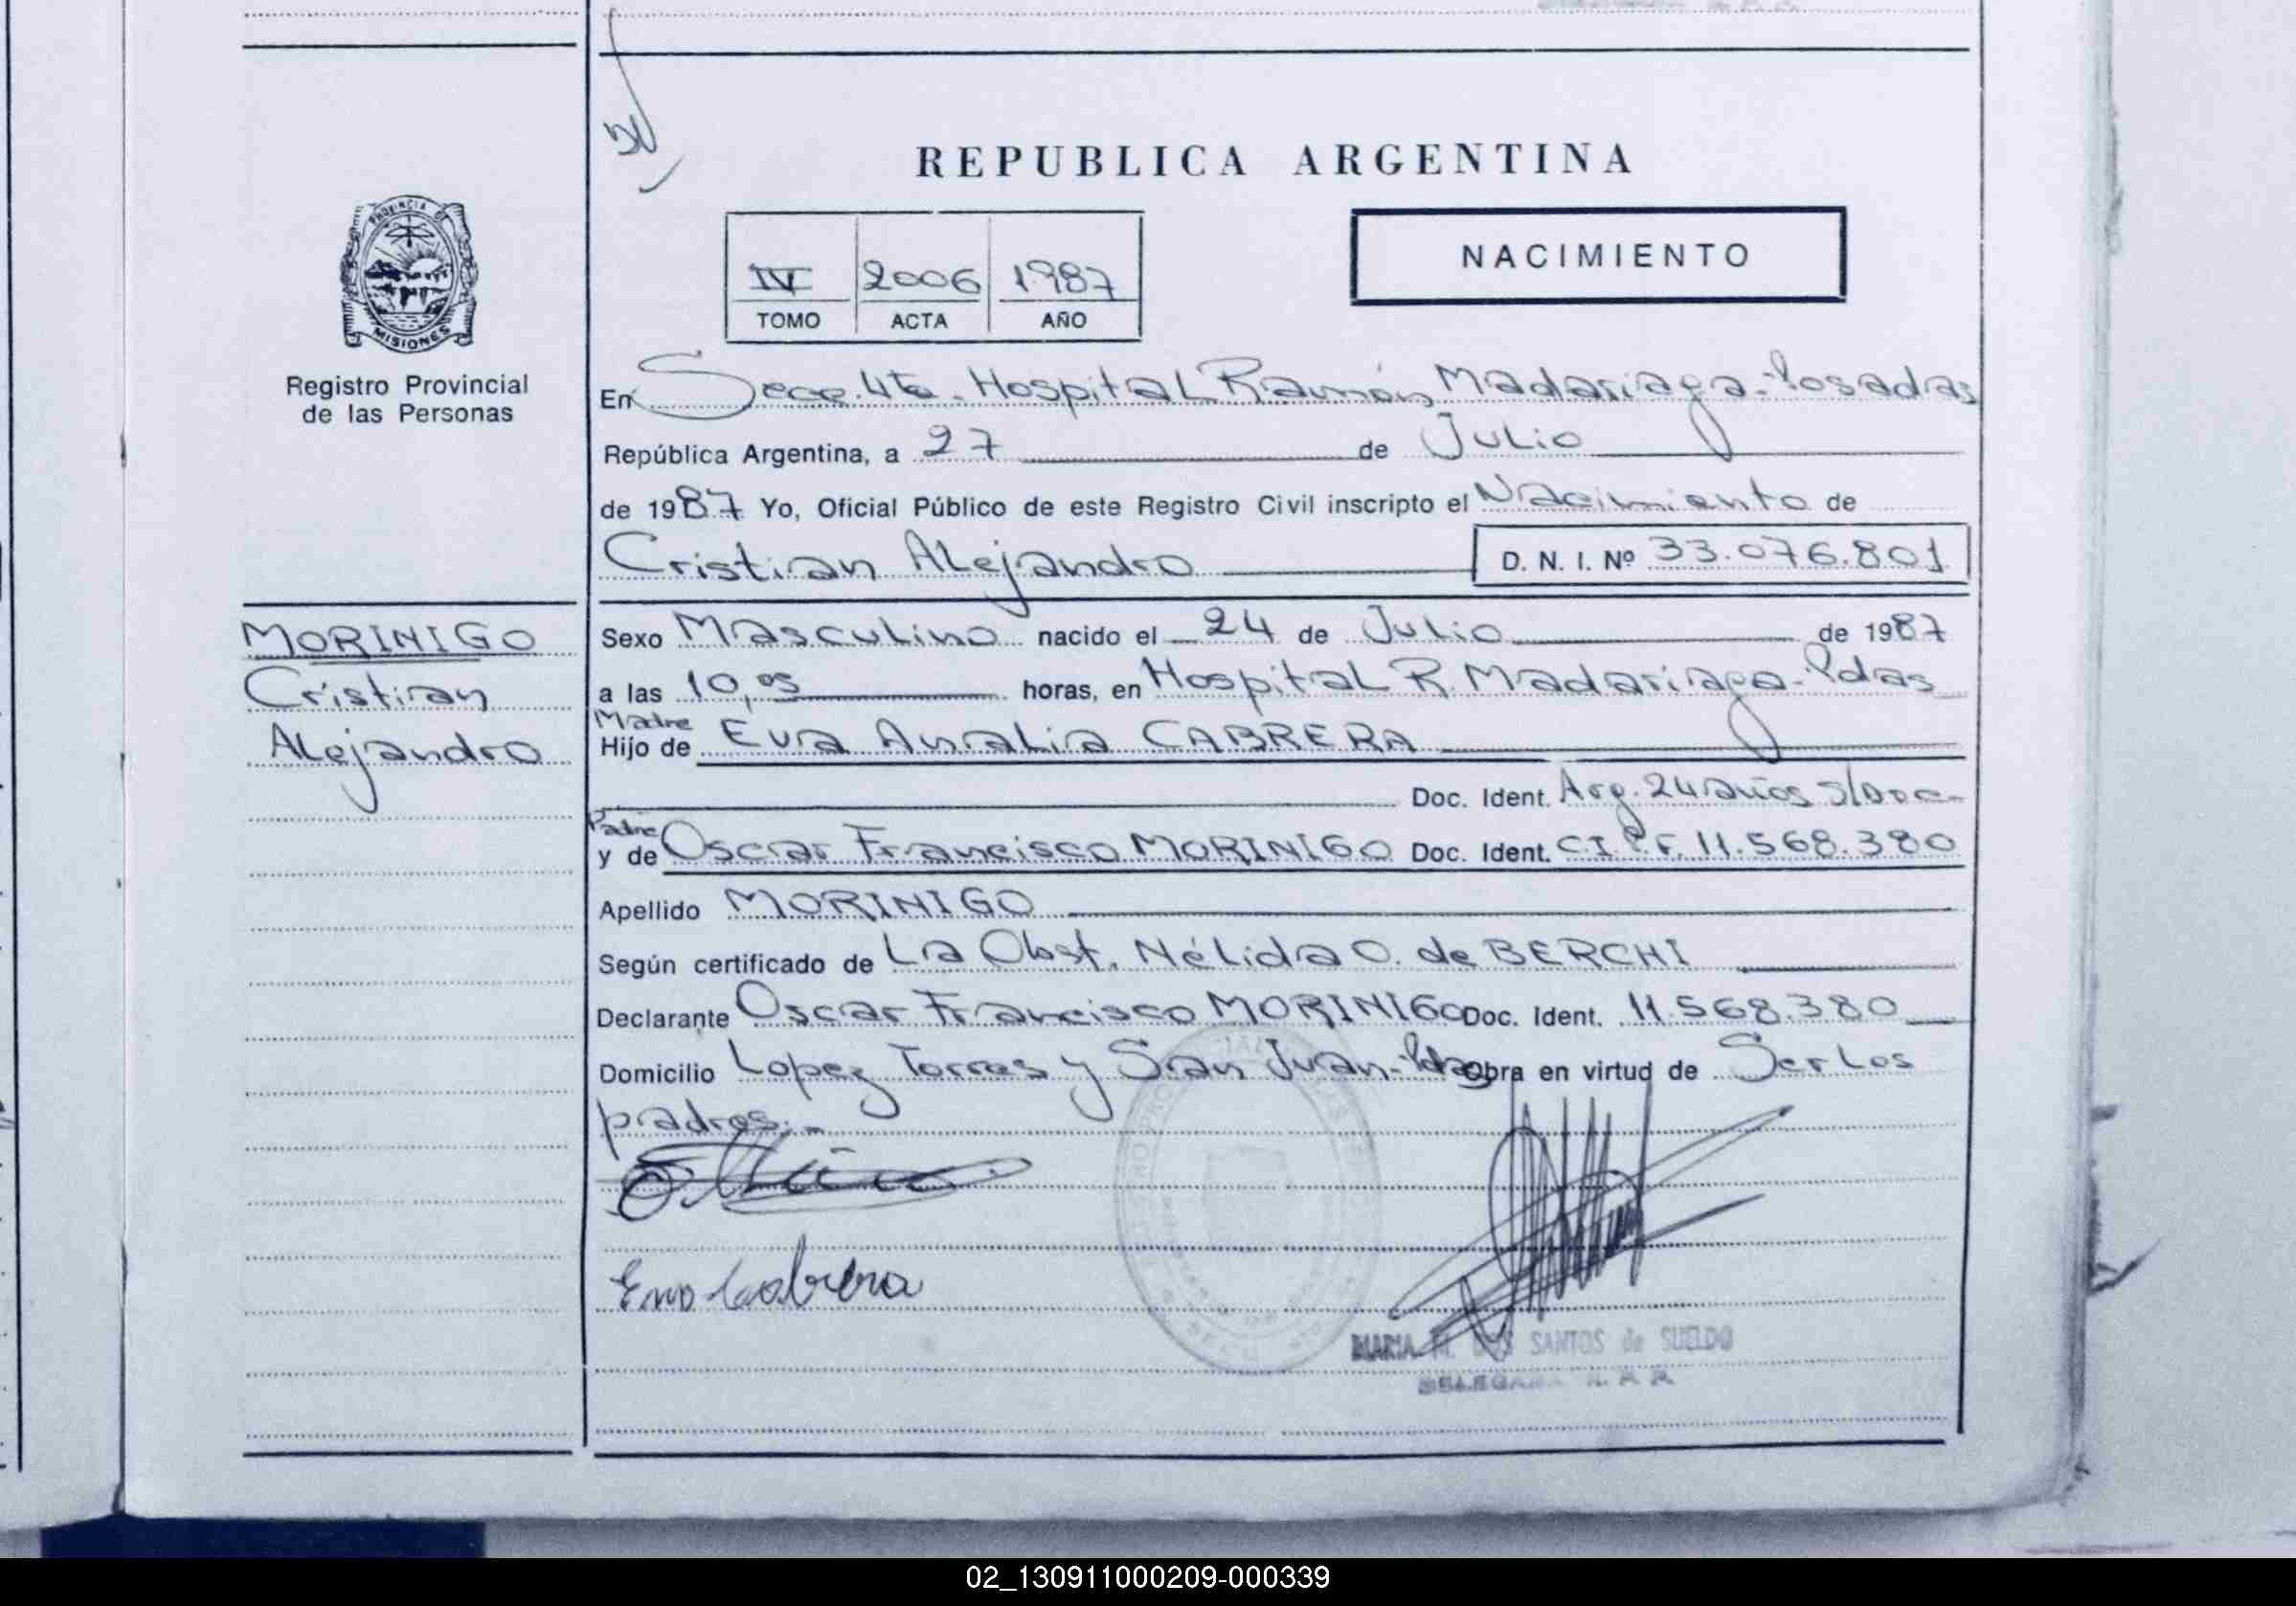 REPUBLICA ARGENTINA
NACIMIENTO
IV 2006 1987
TOMO ACTA AÑO
PROVINCIA DE
MISIONES
Registro Provincial
de las Personas
MORINIGO
Cristian
Alejandro
En Secc. 4ta. Hospital Ramón Madariaga - Posadas
República Argentina, a 27 de Julio
de 1987 Yo, Oficial Público de este Registro Civil inscripto el Nacimiento de
Cristian Alejandro D. N. I. Nº 33.076.801
Sexo Masculino nacido el 24 de Julio de 1987
a las 10,05 horas, en Hospital R. Madariaga - Pdas
Madre
Hijo de Eva Analia CABRERA
Doc. Ident. Arg. 24 años s/Doc.-
Padre
y de Oscar Francisco MORINIGO Doc. Ident. C.I.P.F. 11.568.380
Apellido MORINIGO
Según certificado de La Obst. Nélida O. de BERCHI
Declarante Oscar Francisco MORINIGO Doc. Ident. 11.568.380
Domicilio Lopez Torres y San Juan - Pdas Obra en virtud de Ser Los
padres.-
Eva Cabrera
MARIA M. DOS SANTOS de SUELDO
DELEGADA R. P. P.
02_130911000209-000339